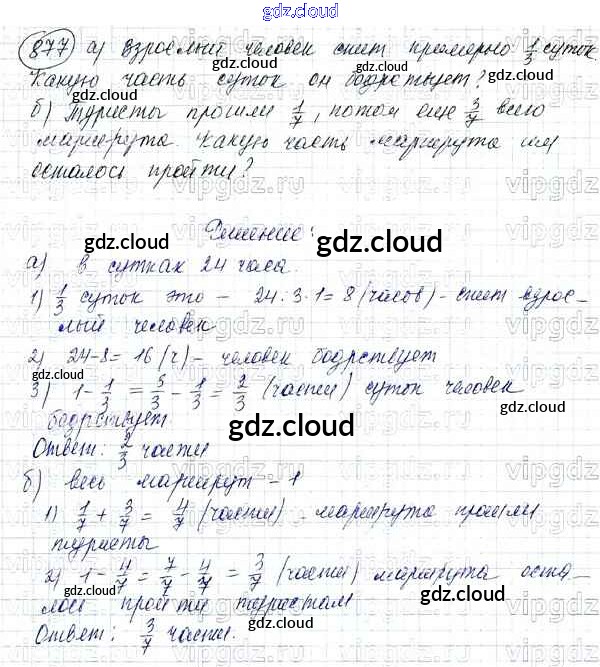 gdz.cloud
877 а) Взрослый человек спит примерно 1/3 суток.
Какую часть суток он бодрствует?
б) Туристы прошли 1/7, потом еще 3/7 всего
маршрута. Какую часть маршрута им
осталось пройти?
Решение:
а) в сутках 24 часа.
1) 1/3 суток это – 24 : 3 · 1 = 8 (часов) – спит взрос–
лый человек
2) 24-8= 16 (ч) – человек бодрствует
3) 1 - 1/3 = 3/3 - 1/3 = 2/3 (части) суток человек
бодрствует.
Ответ: 2/3 части
б) весь маршрут – 1
1) 1/7 + 3/7 = 4/7 (части) – маршрута прошли
туристы
2) 1 - 4/7 = 7/7 - 4/7 = 3/7 (части) маршрута оста–
лось пройти туристам
Ответ: 3/7 части.